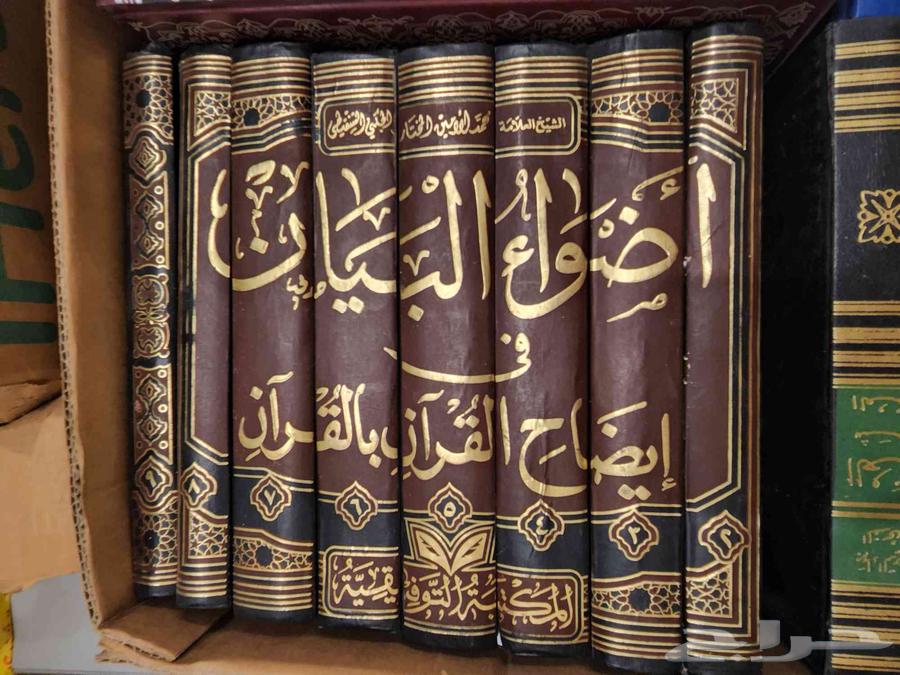 الشيخ العلامة محمد الأمين المختار الجكني الشنقيطي
أَضْوَاءُ الْبَيَانْ
في
إيضَاحِ القُرآنِ بالقُرآنِ
٢ ٣ ٤ ٥ ٦ ٧ ٨ ٩
المكتبة التوفيقية
حراج